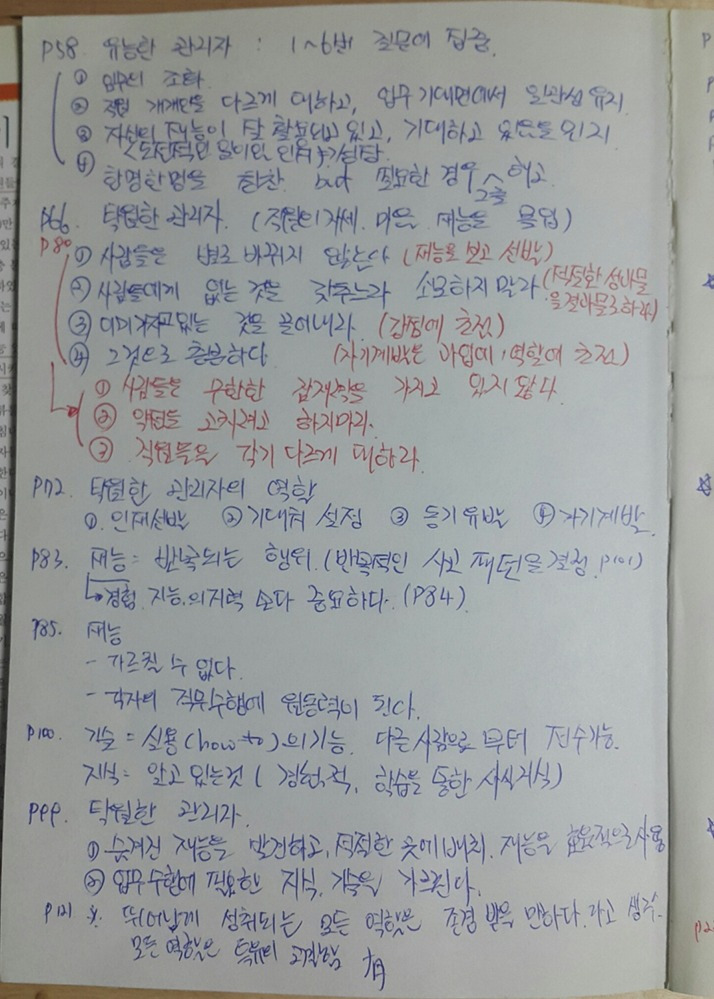 P58. 유능한 관리자 : 1~6번 질문에 집중.
① 업무의 조화
② 직원 개개인을 다르게 대하고, 업무 기대면에서 일관성 유지.
③ 자신의 재능이 잘 활용되고 있고, 기대하고 있음을 인지
<도전적인 일이인
④ 한명한명을 칭찬 but 필요한 경우 그를 해고
P66. 탁월한 관리자. (직원의 자세. 마음. 재능을 몰입)
P80
① 사람들은 별로 바뀌지 않는다 (재능을 보고 선발)
② 사람들에게 없는 것을 갖추느라 소모하지 말라 (적절한 성과물을 결과물로 하라)
③ 이미 가지고 있는 것을 끌어내라 (강점에 초점)
④ 그것으로 충분하다 (자기계발은 역할에 초점)
① 사람들은 무한한 잠재력을 가지고 있지 않다.
② 약점을 고치려고 하지마라.
③ 직원들을 각기 다르게 대하라.
P72. 탁월한 관리자의 역할
① 인재선발 ② 기대치 설정 ③ 동기유발 ④ 자기계발
P83. 재능 = 반복되는 행위. (반복적인 사고 패턴을 결정. P101)
↳ 경험. 지능. 의지력 보다 중요하다. (P84)
P85. 재능
- 가르칠 수 없다.
- 각자의 직무수행에 원동력이 된다.
P100. 기술 = 실용(how to)의 기능. 다른 사람으로 부터 전수가능.
지식 = 알고 있는것 ( 경험적, 학습을 통한 사실지식)
P99. 탁월한 관리자.
① 숨겨진 재능을 발견하고, 적절한 곳에 배치. 재능을 효율적으로 사용
② 업무수행에 필요한 지식, 기술을 가르친다.
P121 ※ 뛰어나게 성취되는 모든 역할은 존경 받을 만하다. 라고 생각.
모든 역할은 특유의 고결함 有